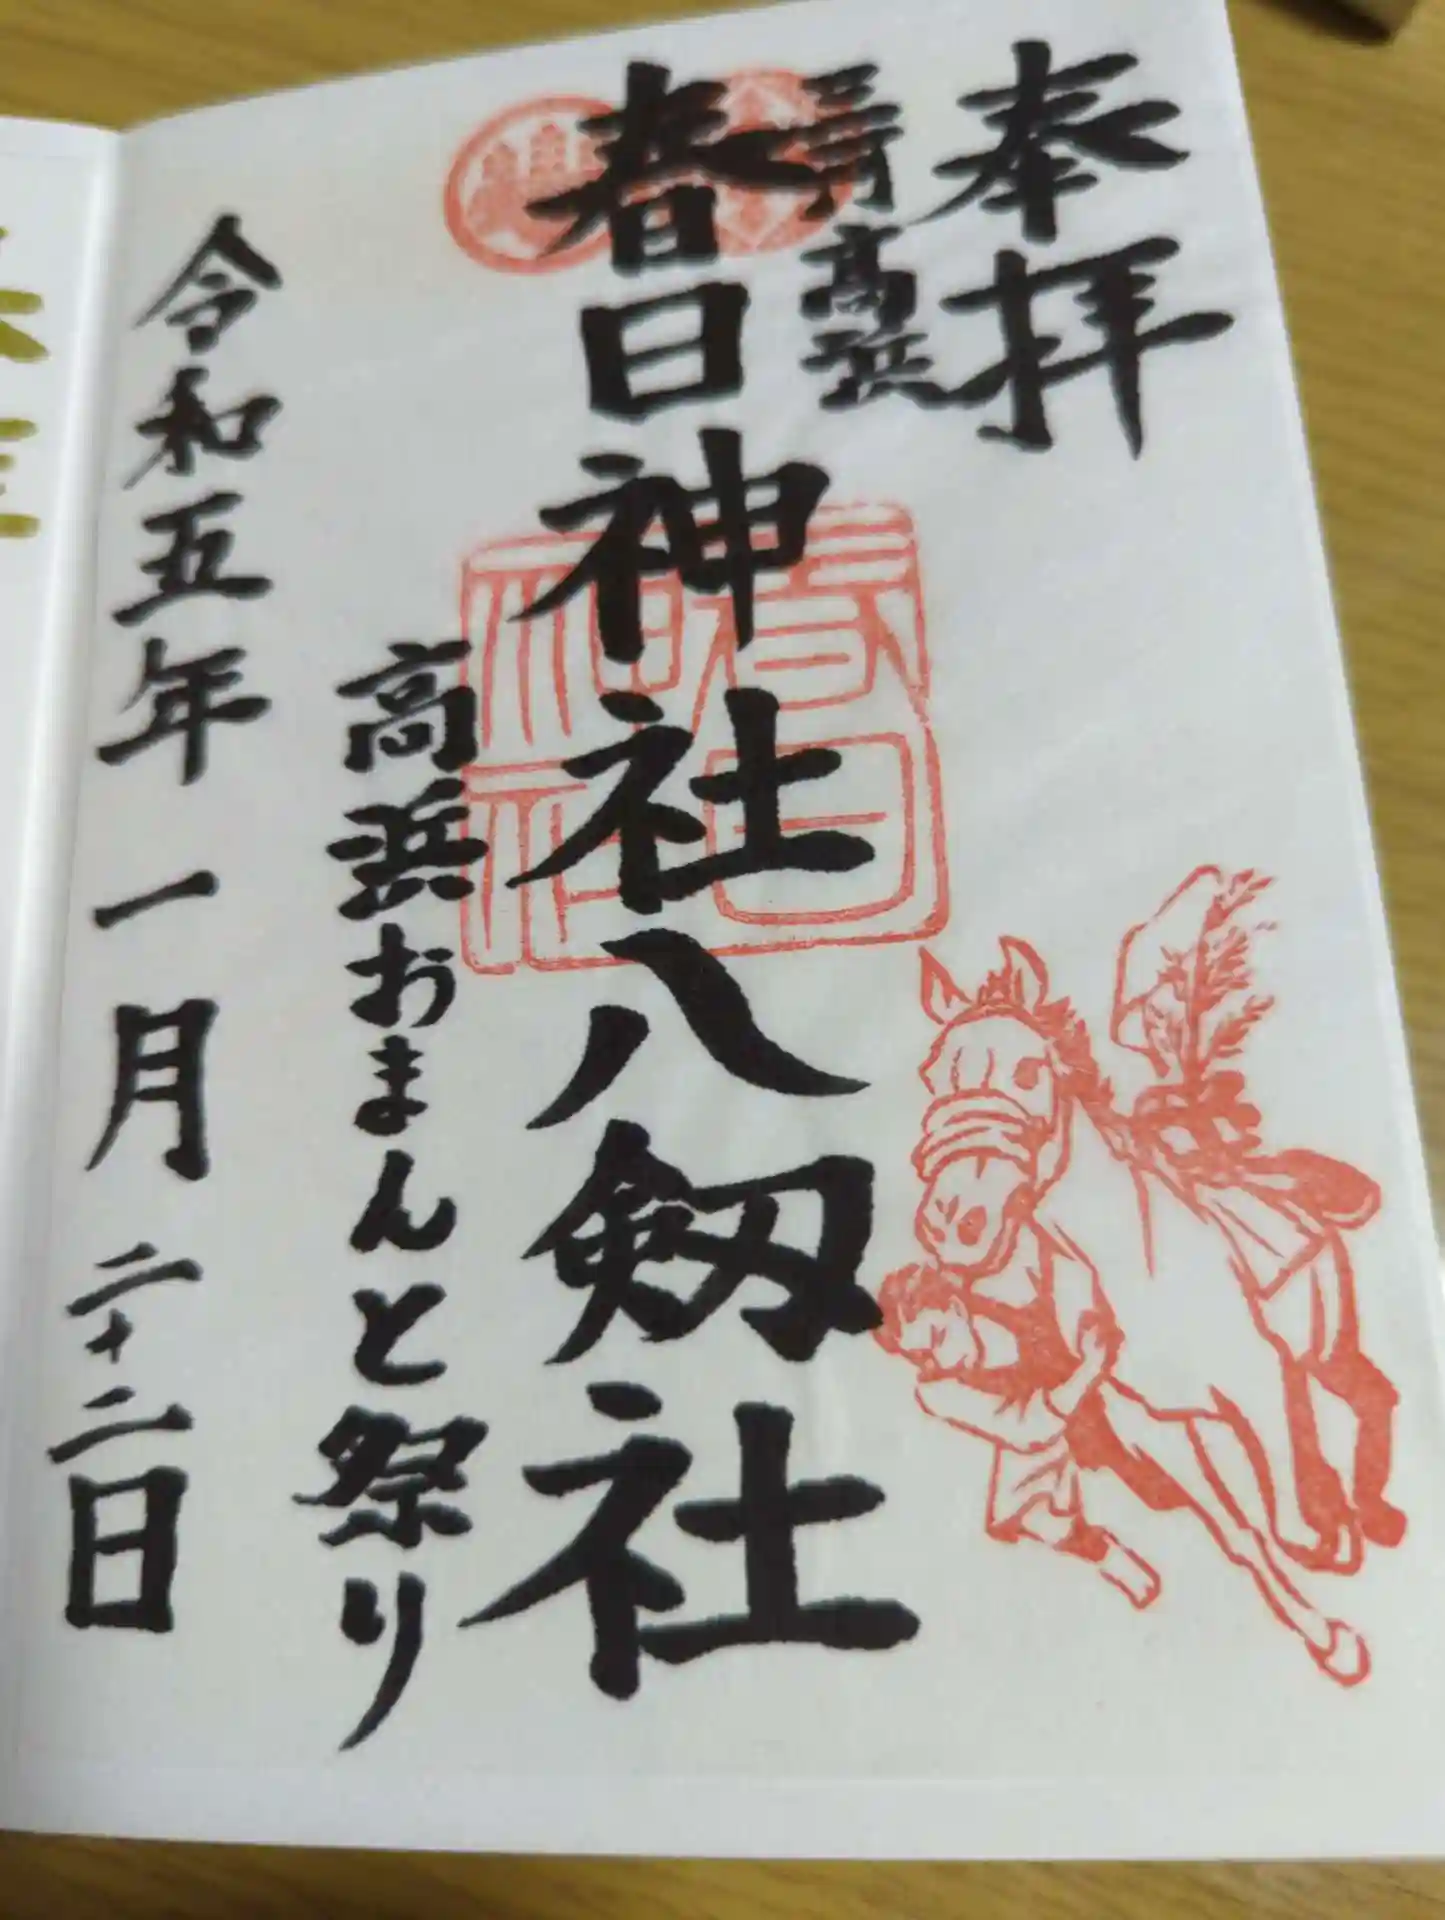 奉拝
三河高浜
春日神社八剱社
高浜おまんと祭り
令和五年一月二十二日
春日神社